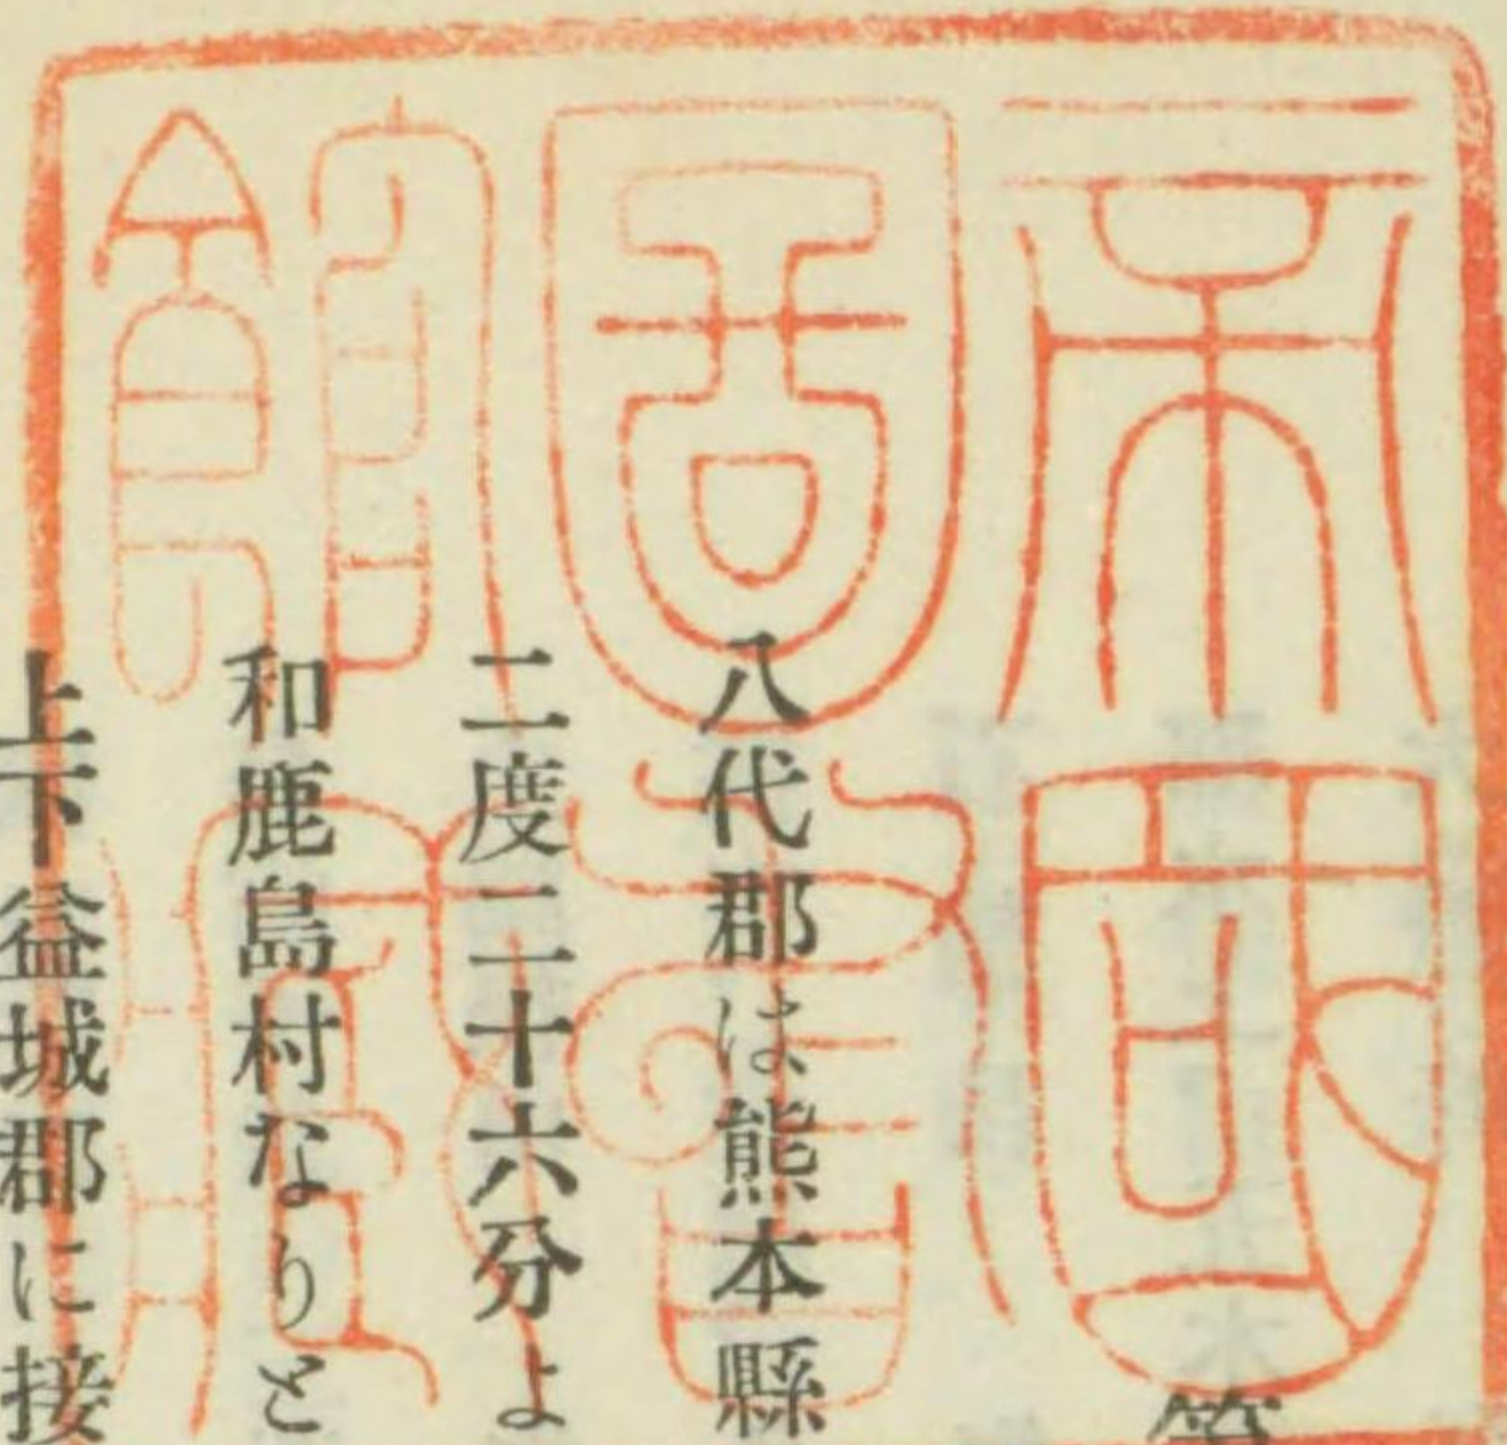 帝國
圖書
館藏
第
八代郡は熊本縣
二度二十六分よ
和鹿島村なりと
上下益城郡に接